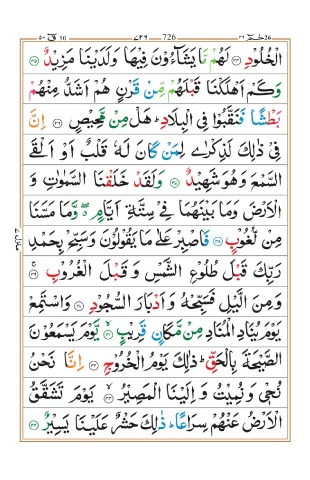 ق ٥٠ 50 ٧٢٦ 726 حٰمٓ ٢٦ 26
الْخُلُوْدِ ﴿٣٤﴾ لَهُمْ مَّا يَشَآءُوْنَ فِيْهَا وَلَدَيْنَا مَزِيْدٌ ﴿٣٥﴾
وَكَمْ اَهْلَكْنَا قَبْلَهُمْ مِّنْ قَرْنٍ هُمْ اَشَدُّ مِنْهُمْ
بَطْشًا فَنَقَّبُوْا فِى الْبِلَادِ ؕ هَلْ مِنْ مَّحِيْصٍ ﴿٣٦﴾ اِنَّ
فِىْ ذٰلِكَ لَذِكْرٰى لِمَنْ كَانَ لَهٗ قَلْبٌ اَوْ اَلْقَى
السَّمْعَ وَهُوَ شَهِيْدٌ ﴿٣٧﴾ وَلَقَدْ خَلَقْنَا السَّمٰوٰتِ وَ
الْاَرْضَ وَمَا بَيْنَهُمَا فِىْ سِتَّةِ اَيَّامٍ ۖ وَّمَا مَسَّنَا
مِنْ لُّغُوْبٍ ﴿٣٨﴾ فَاصْبِرْ عَلٰى مَا يَقُوْلُوْنَ وَسَبِّحْ بِحَمْدِ
رَبِّكَ قَبْلَ طُلُوْعِ الشَّمْسِ وَ قَبْلَ الْغُرُوْبِ ﴿٣٩﴾
وَمِنَ الَّيْلِ فَسَبِّحْهُ وَ اَدْبَارَ السُّجُوْدِ ﴿٤٠﴾ وَاسْتَمِعْ
يَوْمَ يُنَادِ الْمُنَادِ مِنْ مَّكَانٍ قَرِيْبٍ ﴿٤١﴾ يَّوْمَ يَسْمَعُوْنَ
الصَّيْحَةَ بِالْحَقِّ ؕ ذٰلِكَ يَوْمُ الْخُرُوْجِ ﴿٤٢﴾ اِنَّا نَحْنُ
نُحْىٖ وَ نُمِيْتُ وَ اِلَيْنَا الْمَصِيْرُ ﴿٤٣﴾ يَوْمَ تَشَقَّقُ
الْاَرْضُ عَنْهُمْ سِرَاعًا ؕ ذٰلِكَ حَشْرٌ عَلَيْنَا يَسِيْرٌ ﴿٤٤﴾